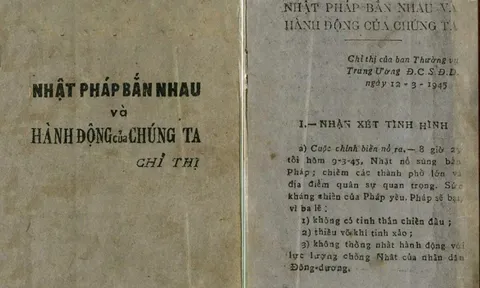 NHẬT PHÁP BẮN NHAU
và
HÀNH ĐỘNG của CHÚNG TA
CHỈ THỊ
NHẬT PHÁP BẮN NHAU VÀ
HÀNH ĐỘNG CỦA CHÚNG TA
Chỉ thị của ban Thường vụ
Trung Ương Đ.C.S.Đ.D.
ngày 12-3-1945
I.— NHẬN XÉT TÌNH HÌNH
a) Cuộc chính biến nổ ra.— 8 giờ
tối hôm 9-3-45, Nhật nổ súng bắn
Pháp; chiếm các thành phố lớn và
địa điểm quân sự quan trọng. Sức
kháng chiến của Pháp yếu. Pháp sẽ bại
vì ba lẽ:
1) không có tinh thần chiến đấu;
2) thiếu võ khí tinh xảo;
3) không thống nhất hành động với
lực lượng chống Nhật của nhân dân
Đông-dương.